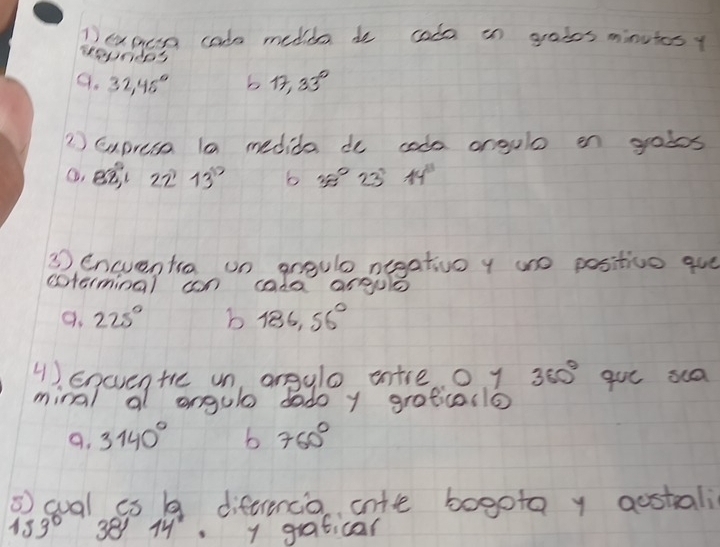 1) expresa cada medida de cada en grados minutos y
segundos
a. 32,45° b 17,33°
2) Expresa la medida de cada angulo en grados
a. 22' 13" b 38° 23' 14"
3) encuentra un angulo negativo y uno positivo que
coterminal con cada angulo
a. 225° b 186,56°
4) Encuentre un angulo entre 0 y 360° que sea
minal al angulo dado y graficarlo
a. 3140° b 760°
5) cual es la diferencia entre bogota y australi
153° 38' 14". y graficar